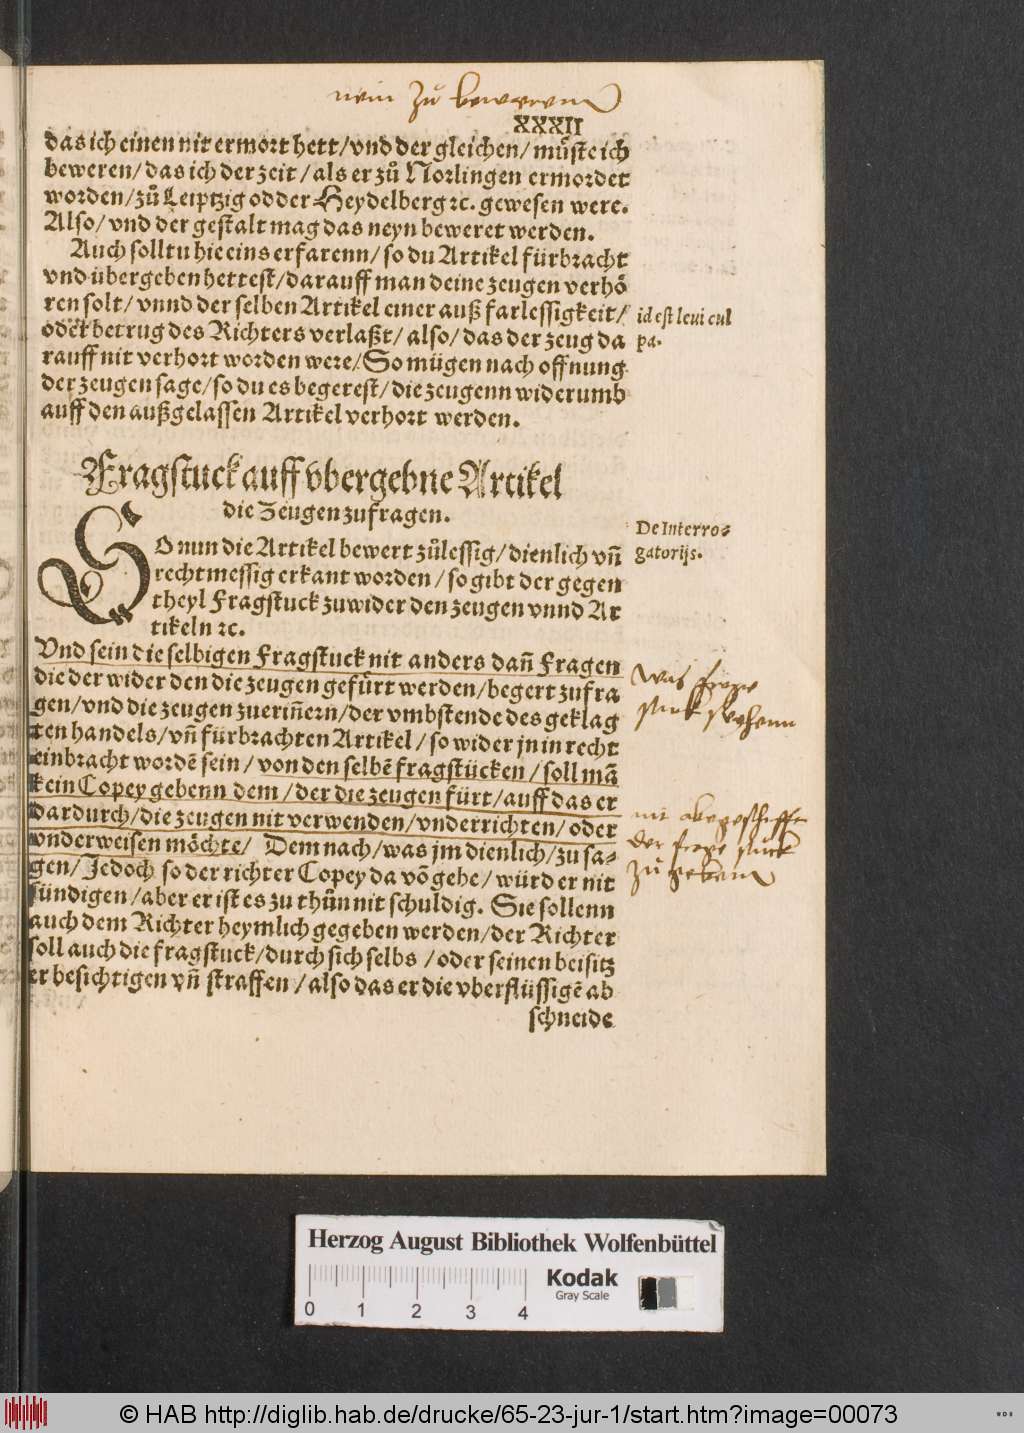 nein zů bewerenn
XXXII
das ich einen nit ermort hett/ vnd der gleichen/ můste ich
beweren/ das ich der zeit/ als er zů Norlingen ermordet
worden/ zů Leiptzig odder Heydelberg ꝛc. gewesen were.
Also/ vnd der gestalt mag das neyn beweret werden.
Auch solltu hie eins erfarenn/ so du Artikel fürbracht
vnd übergeben hettest/ darauff man deine zeugen verhö
ren solt/ vnnd der selben Artikel einer auß farlessigkeit/
oder betrug des Richters verlaßt/ also/ das der zeug da
rauff nit verhort worden were/ So mügen nach offnung
der zeugen sage/ so du es begerest/ die zeugenn widerumb
auff den außgelassen Artikel verhort werden.
id est leui cul
pa.
Fragstuck auff vbergebne Artikel
die Zeugen zufragen.
De Interro-
gatorijs.
SO nun die Artikel bewert zůlessig/ dienlich vñ
rechtmessig erkant worden/ so gibt der gegen
theyl Fragstuck zuwider den zeugen vnnd Ar
tikeln ꝛc.
Vnd sein die selbigen Fragstuck nit anders dañ Fragen
die der wider den die zeugen gefürt werden/ begert zufra
gen/ vnd die zeugen zueriñern/ der vmbstende des geklag
ten handels/ vñ fürbrachten Artikel/ so wider jn in recht
einbracht wordē sein/ von den selbē fragstücken/ soll mā
kein Copey gebenn dem/ der die zeugen fürt/ auff das er
dardurch/ die zeugen nit verwenden/ vnderrichten/ oder
vnderweisen möchte/ Demnach/ was jm dienlich/ zu sa-
gen/ Jedoch so der richter Copey da võ gebe/ würd er nit
sündigen/ aber er ist es zu thůn nit schuldig. Sie sollenn
auch dem Richter heymlich gegeben werden/ der Richter
soll auch die fragstuck/ durch sich selbs / oder seinen beisitz
er besichtigen vñ straffen / also das er die vberflüssigē ab
schneide
Was frage
stuck
nit
der frage stuck
zů geben
Herzog August Bibliothek Wolfenbüttel
0 1 2 3 4
Kodak
Gray Scale
© HAB http://diglib.hab.de/drucke/65-23-jur-1/start.htm?image=00073